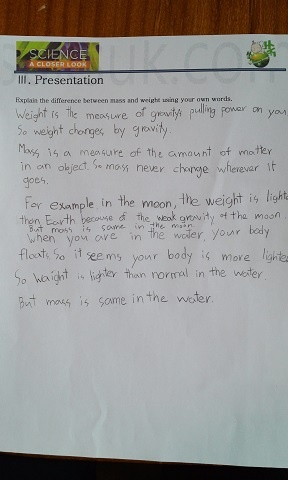 SCIENCE
A CLOSER LOOK
III. Presentation
Explain the difference between mass and weight using your own words.
Weight is the measure of gravity's pulling power on you
So weight changes by gravity.
Mass is a measure of the amount of matter
in an object So mass never change wherever it
goes.
For example in the moon, the weight is light
than Earth because of the weak gravity of the moon.
But mass is same in the moon
When you are in the water, your body
floats so it seems your body is more lighter
So Waight is lighter than normal in the water.
But mass is same in the water.